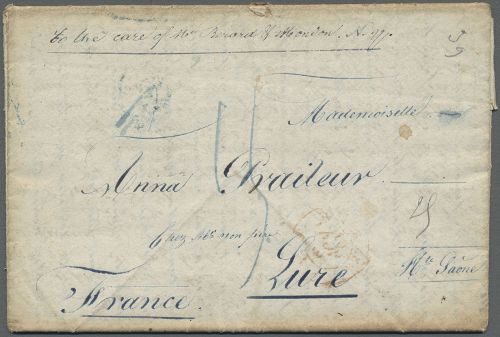 To the care of Mrs Berard & Mondon. N. Y.
39
Mademoiselle
Anna Traiteur
15
Chez Mr. son père
25
Lure
Hte Saône
France